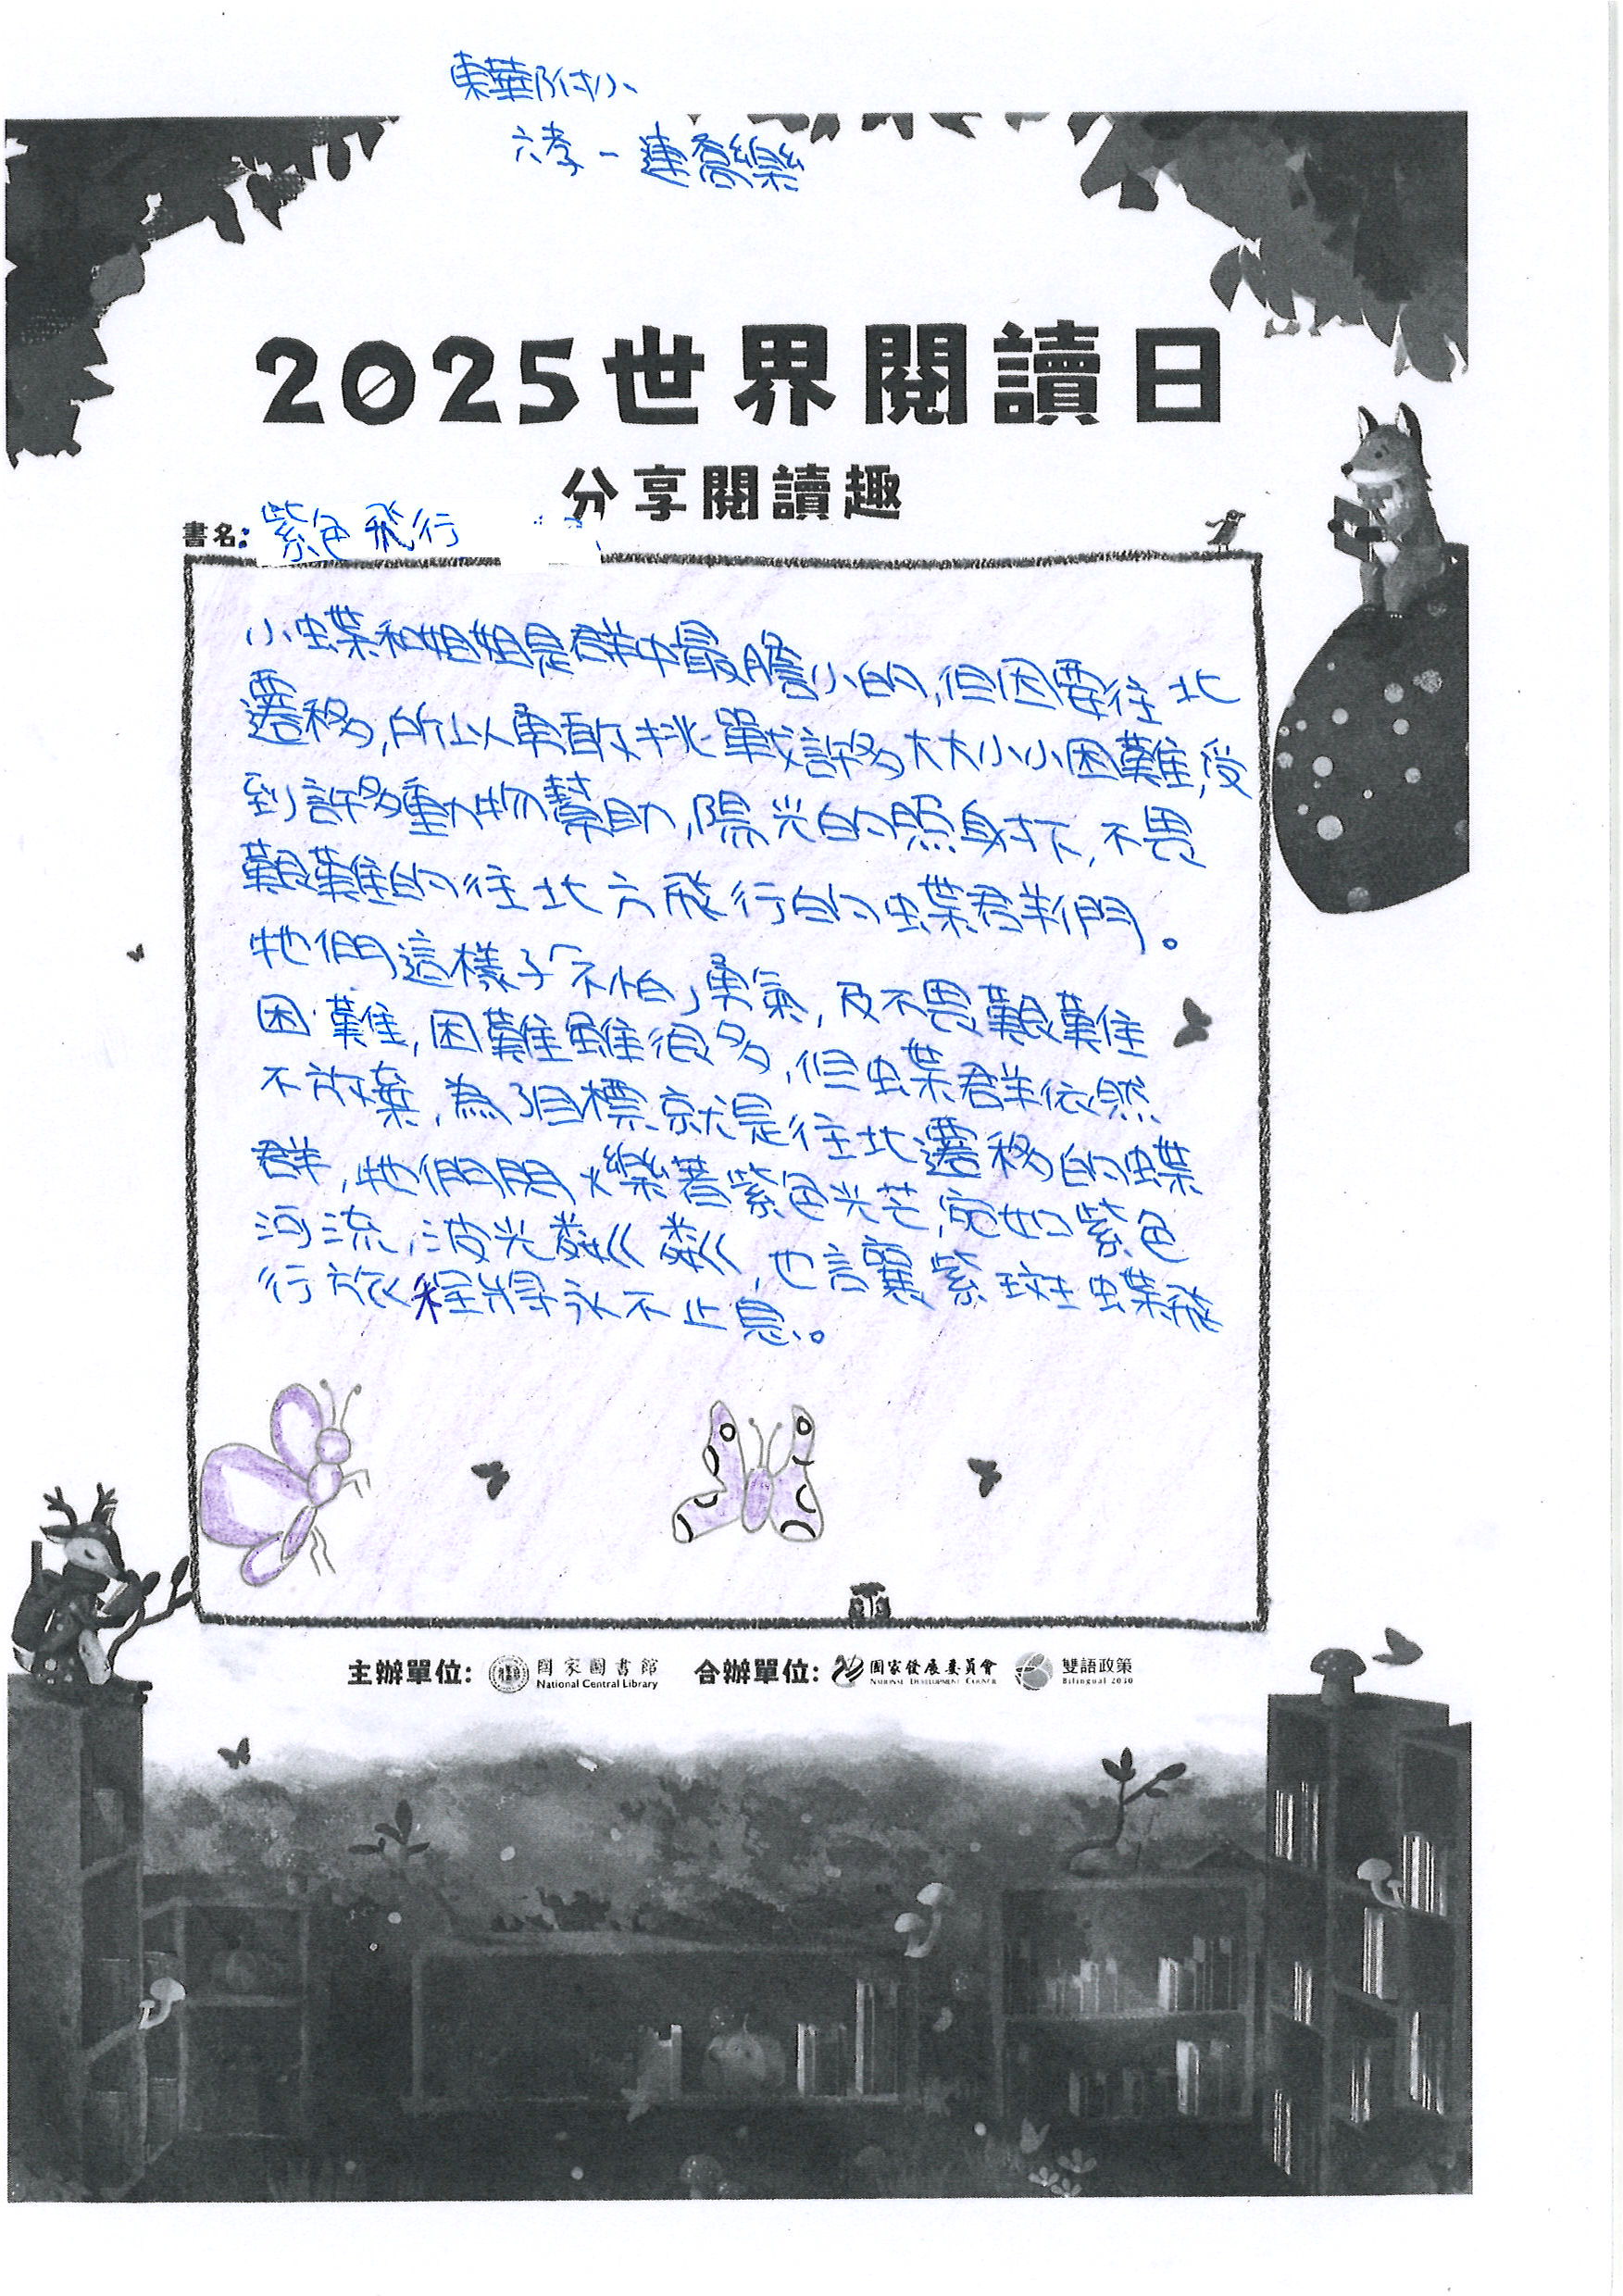 東華附小
六孝-連喬樂
2025世界閱讀日
分享閱讀趣
書名:紫色飛行
小蝶和姐姐是群中最膽小的,但因要往北
遷移,所以勇敢挑戰許多大大小小困難,受
到許多動物幫助,陽光的照射下,不畏
艱難的往北方飛行的蝶群們。
牠們這樣子「不怕」勇氣,及不畏艱難
困難,困難雖很多,但蝶群依然
不放棄,為了目標就是往北遷移的蝶
群,牠們閃爍著紫色光芒,宛如紫色
河流,波光粼粼,也讓紫斑蝶飛
行旅程將永不止息。
主辦單位: 國家圖書館 National Central Library 合辦單位: 國家發展委員會 National Development Council 雙語政策 Bilingual 2030